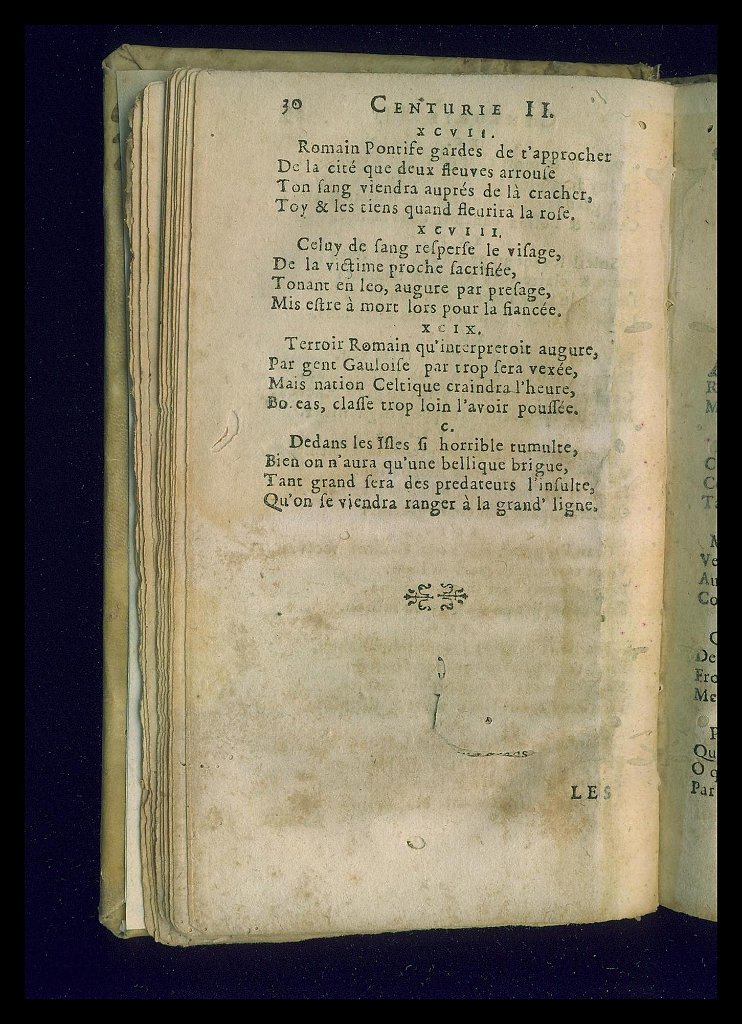 30 CENTURIE II.
XCVII.
Romain Pontife gardes de t'approcher
De la cité que deux fleuves arrouſe
Ton ſang viendra auprés de là cracher,
Toy & les tiens quand fleurira la roſe.
XCVIII.
Celuy de ſang reſperſe le viſage,
De la victime proche ſacrifiée,
Tonant en leo, augure par preſage,
Mis eſtre à mort lors pour la fiancée.
XCIX.
Terroir Romain qu'interpretoit augure,
Par gent Gauloiſe par trop ſera vexée,
Mais nation Celtique craindra l'heure,
Bo.eas, claſſe trop loin l'avoir pouſſée.
C.
Dedans les Iſles ſi horrible tumulte,
Bien on n'aura qu'une bellique brigue,
Tant grand ſera des predateurs l'inſulte,
Qu'on ſe viendra ranger à la grand' ligne.
LES
R
M
C
C
Ve
Au
Co
De
Fro
Me
P
Qu
O q
Par